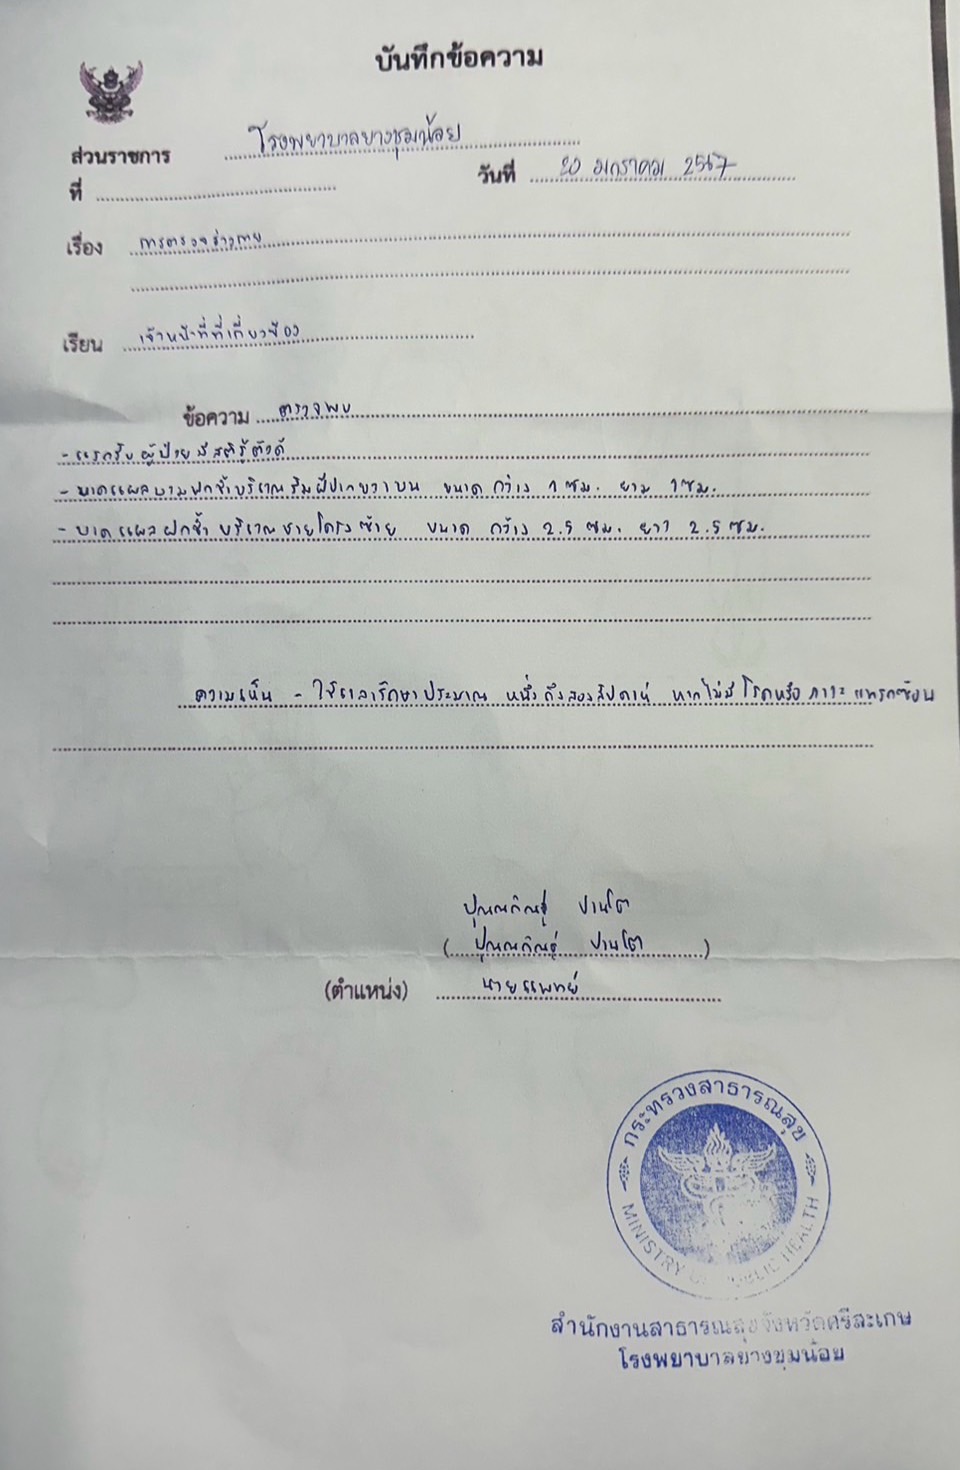 บันทึกข้อความ
ส่วนราชการ โรงพยาบาลยางชุมน้อย
ที่ วันที่ 20 มกราคม 2567
เรื่อง การตรวจร่างกาย
เรียน เจ้าหน้าที่ที่เกี่ยวข้อง
ข้อความ ตรวจพบ
- แรกรับ ผู้ป่วยมีสติรู้ตัวดี
- บาดแผลบวมฟกช้ำบริเวณริมฝีปากขวาบน ขนาด กว้าง 1 ซม. ยาว 1 ซม.
- บาดแผลฟกช้ำ บริเวณชายโครงซ้าย ขนาด กว้าง 2.5 ซม. ยาว 2.5 ซม.
ความเห็น - ใช้เวลารักษาประมาณ หนึ่งถึงสองสัปดาห์ หากไม่มีโรคหรือ ภาวะ แทรกซ้อน
ปานโต
( ปานโต )
(ตำแหน่ง) นายแพทย์
กระทรวงสาธารณสุข
MINISTRY OF PUBLIC HEALTH
สำนักงานสาธารณสุขจังหวัดศรีสะเกษ
โรงพยาบาลยางชุมน้อย